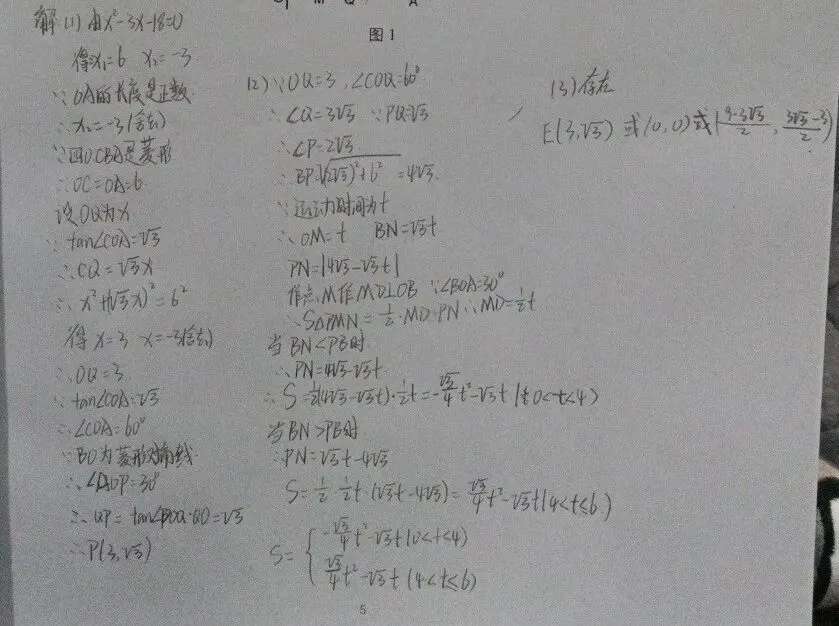 M Q A
图1
解(1)由x²-3x-18=0
得x₁=6 x₂=-3
∵OA的长度是正数
∴x₂=-3(舍去)
∵四OCBA是菱形
∴OC=OA=6
设OQ为x
∵tan∠COA=√3
∴CQ=√3x
∴x²+(√3x)²=6²
得x=3 x=-3(舍去)
∴OQ=3
∵tan∠COA=√3
∴∠COA=60°
∵BO为菱形对角线
∴∠AOP=30°
∴QP=tan∠POQ·QO=√3
∴P(3,√3)
(2)∵OQ=3,∠COQ=60°
∴CQ=3√3 ∵PQ=√3
∴CP=2√3
∴BP=√(2√3)²+6²=4√3
∵运动时间为t
∴OM=t BN=√3t
PN=|4√3-√3t|
作点M作MD⊥OB ∵∠BOA=30°
∴S△PMN=½·MD·PN ∴MD=½t
当BN<PB时
∴PN=4√3-√3t
∴S=½(4√3-√3t)·½t=-√3/4t²-√3t(0<t<4)
当BN>PB时
∵PN=√3t-4√3
S=½·½t·(√3t-4√3)=√3/4t²-√3t(4<t≤6)
S={-√3/4t²-√3t(0<t<4)
√3/4t²-√3t(4<t≤6)
(3)存在
E(3,√3)或(0,0)或(9-3√3/2,3√3-3/2)
5